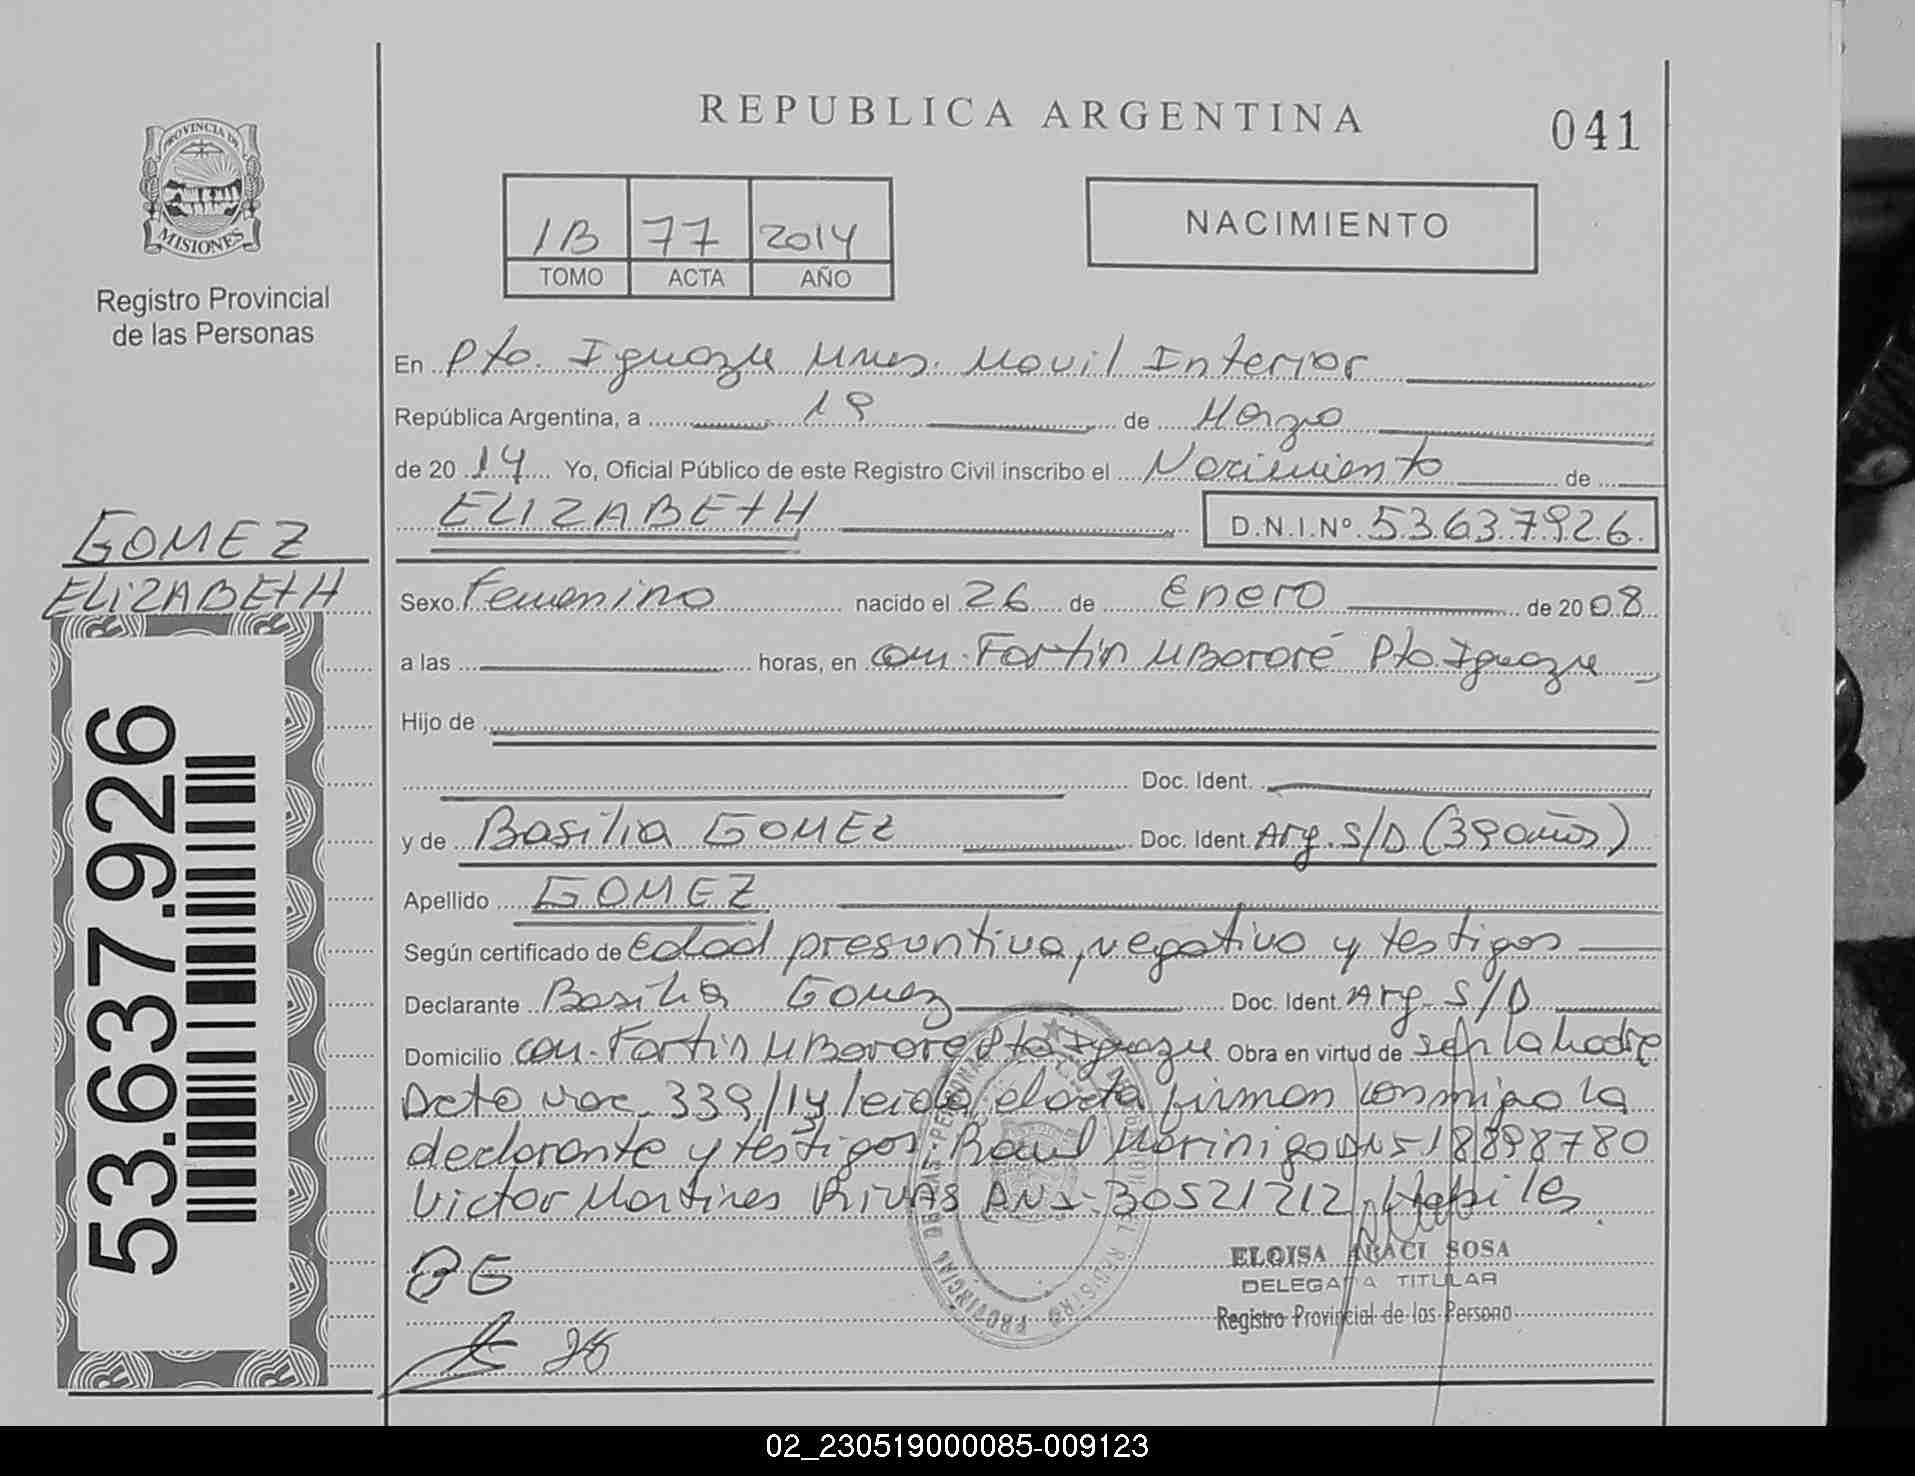 REPUBLICA ARGENTINA
041
PROVINCIA DE
MISIONES
Registro Provincial
de las Personas
1B 77 2014
TOMO ACTA AÑO
NACIMIENTO
En Pto. Iguazu Mnes. Movil Interior
República Argentina, a 19 de Marzo
de 2014 Yo, Oficial Público de este Registro Civil inscribo el Nacimiento de
ELIZABETH D.N.I.Nº 53637926
GOMEZ
ELIZABETH
Sexo Femenino nacido el 26 de Enero de 2008
a las horas, en com. Fortin MBororé Pto. Iguazu
Hijo de
Doc. Ident.
y de Basilia GOMEZ Doc. Ident. Arg. S/D (39 años)
Apellido GOMEZ
Según certificado de Edad presuntiva, negativo y testigos
Declarante Basilia Gomez Doc. Ident. Arg. S/D
Domicilio com. Fortin MBororé Pto Iguazu Obra en virtud de ser la Madre
Dcto Nac. 339/14 leida el acta firman conmigo la
declarante y testigos: Raul Morinigo DNI 18898780
Victor Martines RIVAS DNI 30521212 Habiles
BG
ELOISA ARACI SOSA
DELEGADA TITULAR
Registro Provincial de las Persona
53.637.926
02_230519000085-009123